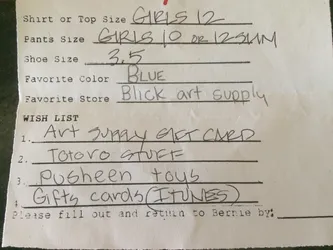 Shirt or Top Size GIRLS 12
Pants Size GIRLS 10 OR 12 SLIM
Shoe Size 3.5
Favorite Color BLUE
Favorite Store Blick art supply
WISH LIST
1. Art SUPPLY GIFT CARD
2. TOTORO STUFF
3. Pusheen toys
4 Gifts cards (ITUNES)
Please fill out and return to Bernie by: